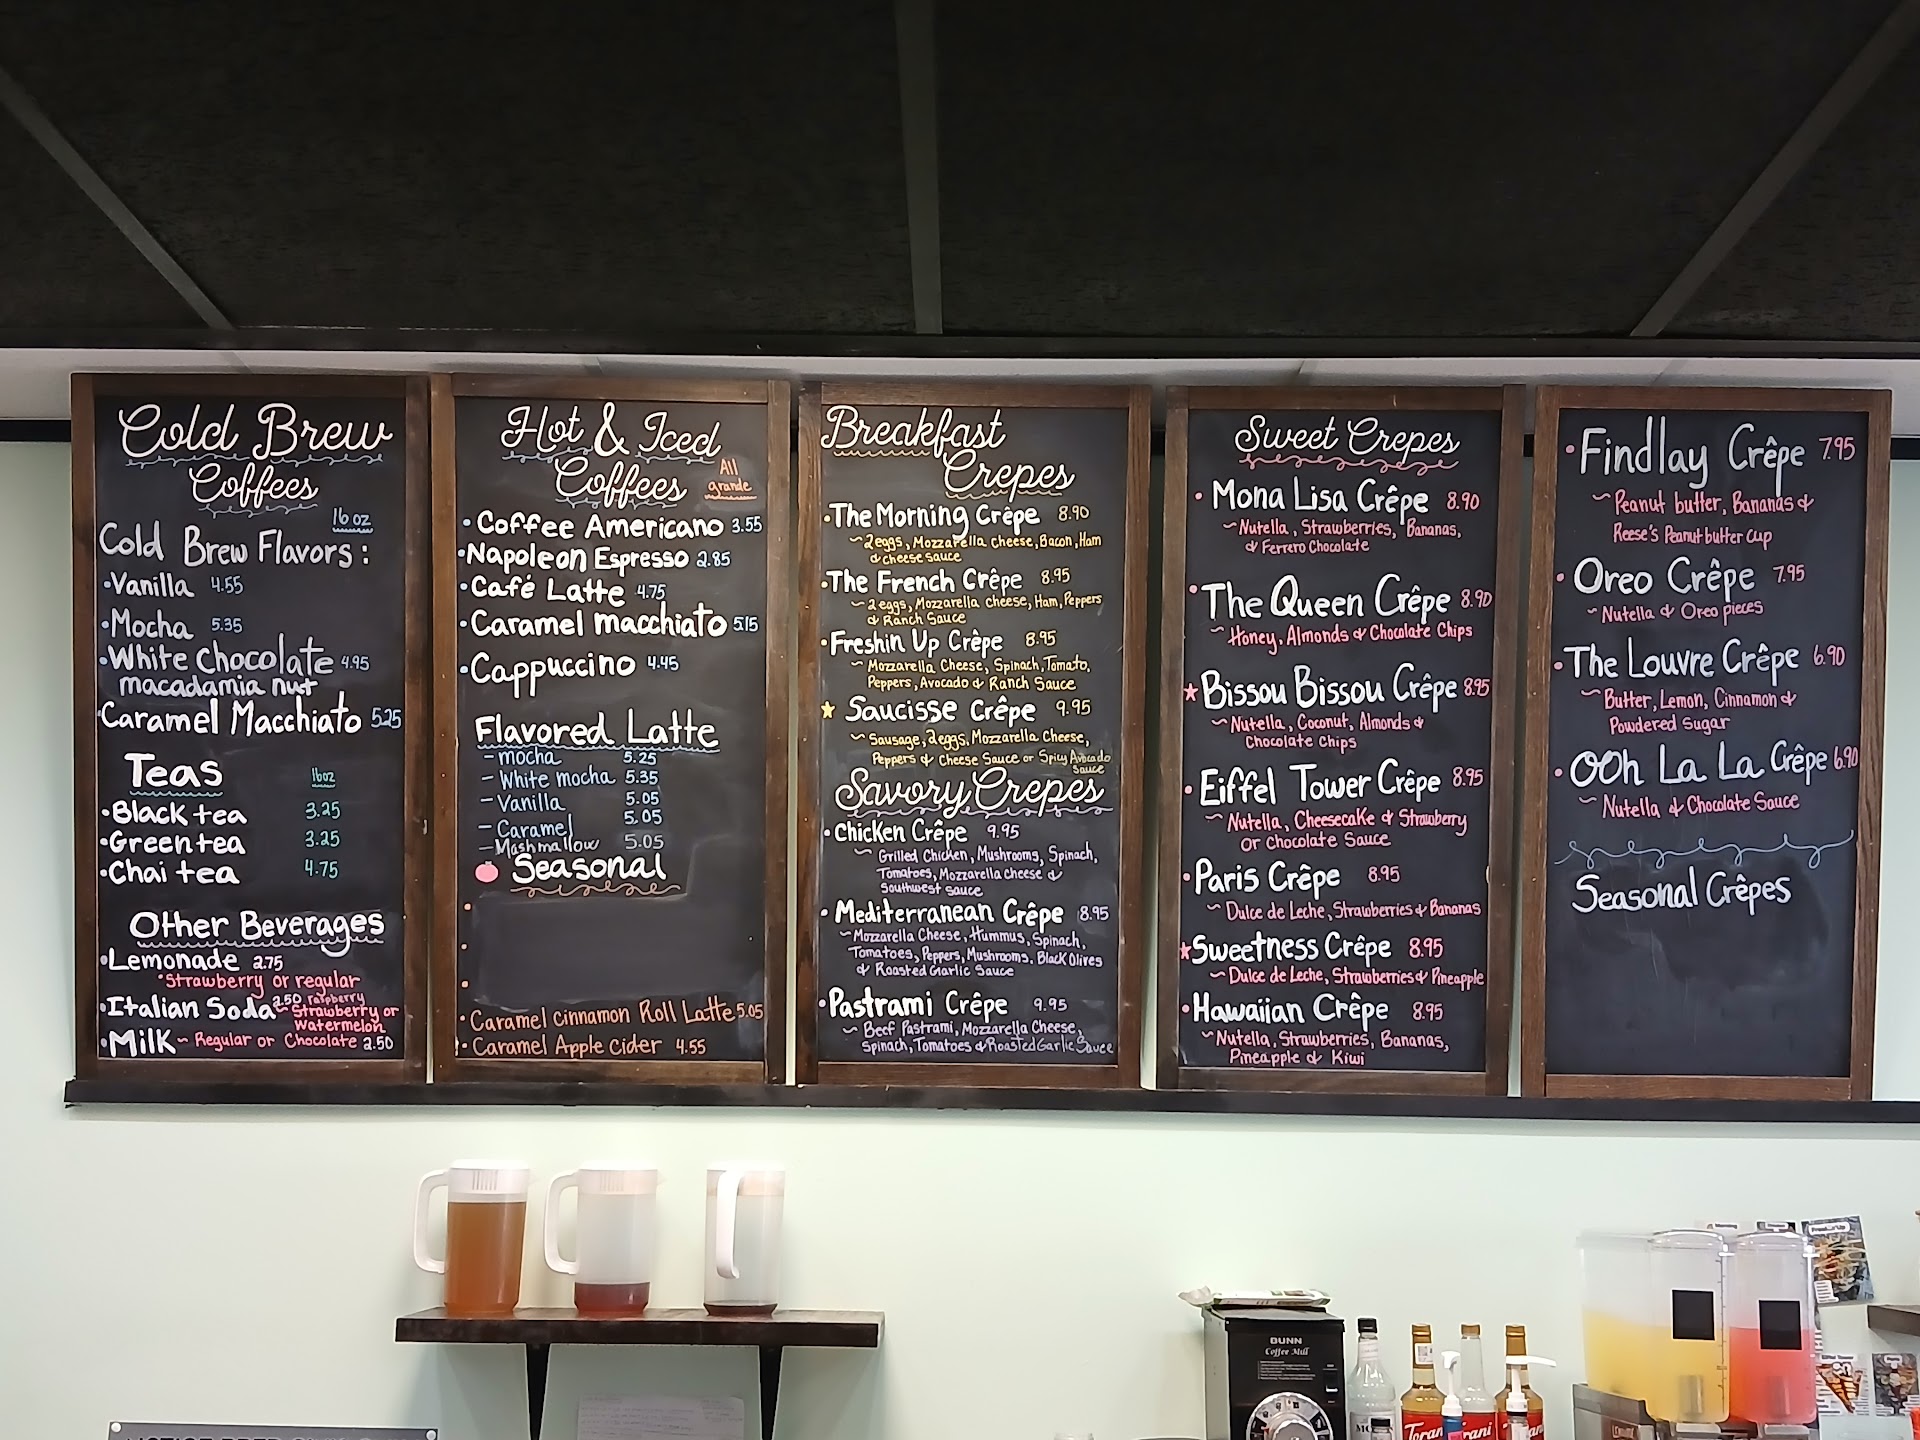 Cold Brew
Coffees
16 oz
Cold Brew Flavors:
•Vanilla 4.55
•Mocha 5.35
•White chocolate 4.95
macadamia nut
•Caramel Macchiato 5.25
Teas 16oz
•Black tea 3.25
•Green tea 3.25
•Chai tea 4.75
Other Beverages
•Lemonade 2.75
•Strawberry or regular
•Italian Soda 2.50 raspberry
~ Strawberry or
Watermelon
•Milk ~ Regular or Chocolate 2.50
Hot & Iced
Coffees All
grande
•Coffee Americano 3.55
•Napoleon Espresso 2.85
•Café Latte 4.75
•Caramel macchiato 5.15
•Cappuccino 4.45
Flavored Latte
- mocha 5.25
- White mocha 5.35
- Vanilla 5.05
- Caramel 5.05
- Mashmallow 5.05
Seasonal
•Caramel cinnamon Roll Latte 5.05
•Caramel Apple Cider 4.55
Breakfast
Crepes
•The Morning Crêpe 8.90
~2eggs, Mozzarella cheese, Bacon, Ham
& cheese sauce
•The French Crêpe 8.95
~2eggs, Mozzarella cheese, Ham, Peppers
& Ranch Sauce
•Freshin Up Crêpe 8.95
~Mozzarella Cheese, Spinach, Tomato,
Peppers, Avocado & Ranch Sauce
★ Saucisse Crêpe 9.95
~Sausage, 2eggs, Mozzarella Cheese,
Peppers & Cheese Sauce or Spicy Avocado
Sauce
Savory Crepes
•Chicken Crêpe 9.95
~ Grilled Chicken, Mushrooms, Spinach,
Tomatoes, Mozzarella cheese &
Southwest sauce
•Mediterranean Crêpe 8.95
~Mozzarella Cheese, Hummus, Spinach,
Tomatoes, Peppers, Mushrooms, Black Olives
& Roasted Garlic Sauce
•Pastrami Crêpe 9.95
~ Beef Pastrami, Mozzarella Cheese,
Spinach, Tomatoes & Roasted Garlic Sauce
Sweet Crepes
•Mona Lisa Crêpe 8.90
~Nutella, Strawberries, Bananas,
& Ferrero Chocolate
•The Queen Crêpe 8.90
~Honey, Almonds & Chocolate Chips
★Bissou Bissou Crêpe 8.95
~Nutella, Coconut, Almonds &
Chocolate Chips
•Eiffel Tower Crêpe 8.95
~Nutella, Cheesecake & Strawberry
or Chocolate Sauce
•Paris Crêpe 8.95
~Dulce de Leche, Strawberries & Bananas
★Sweetness Crêpe 8.95
~Dulce de Leche, Strawberries & Pineapple
•Hawaiian Crêpe 8.95
~Nutella, Strawberries, Bananas,
Pineapple & Kiwi
•Findlay Crêpe 7.95
~Peanut butter, Bananas &
Reese's Peanut butter cup
•Oreo Crêpe 7.95
~Nutella & Oreo pieces
•The Louvre Crêpe 6.90
~Butter, Lemon, Cinnamon &
Powdered Sugar
•Ooh La La Crêpe 6.90
~Nutella & Chocolate Sauce
Seasonal Crêpes
BUNN
Coffee Mill